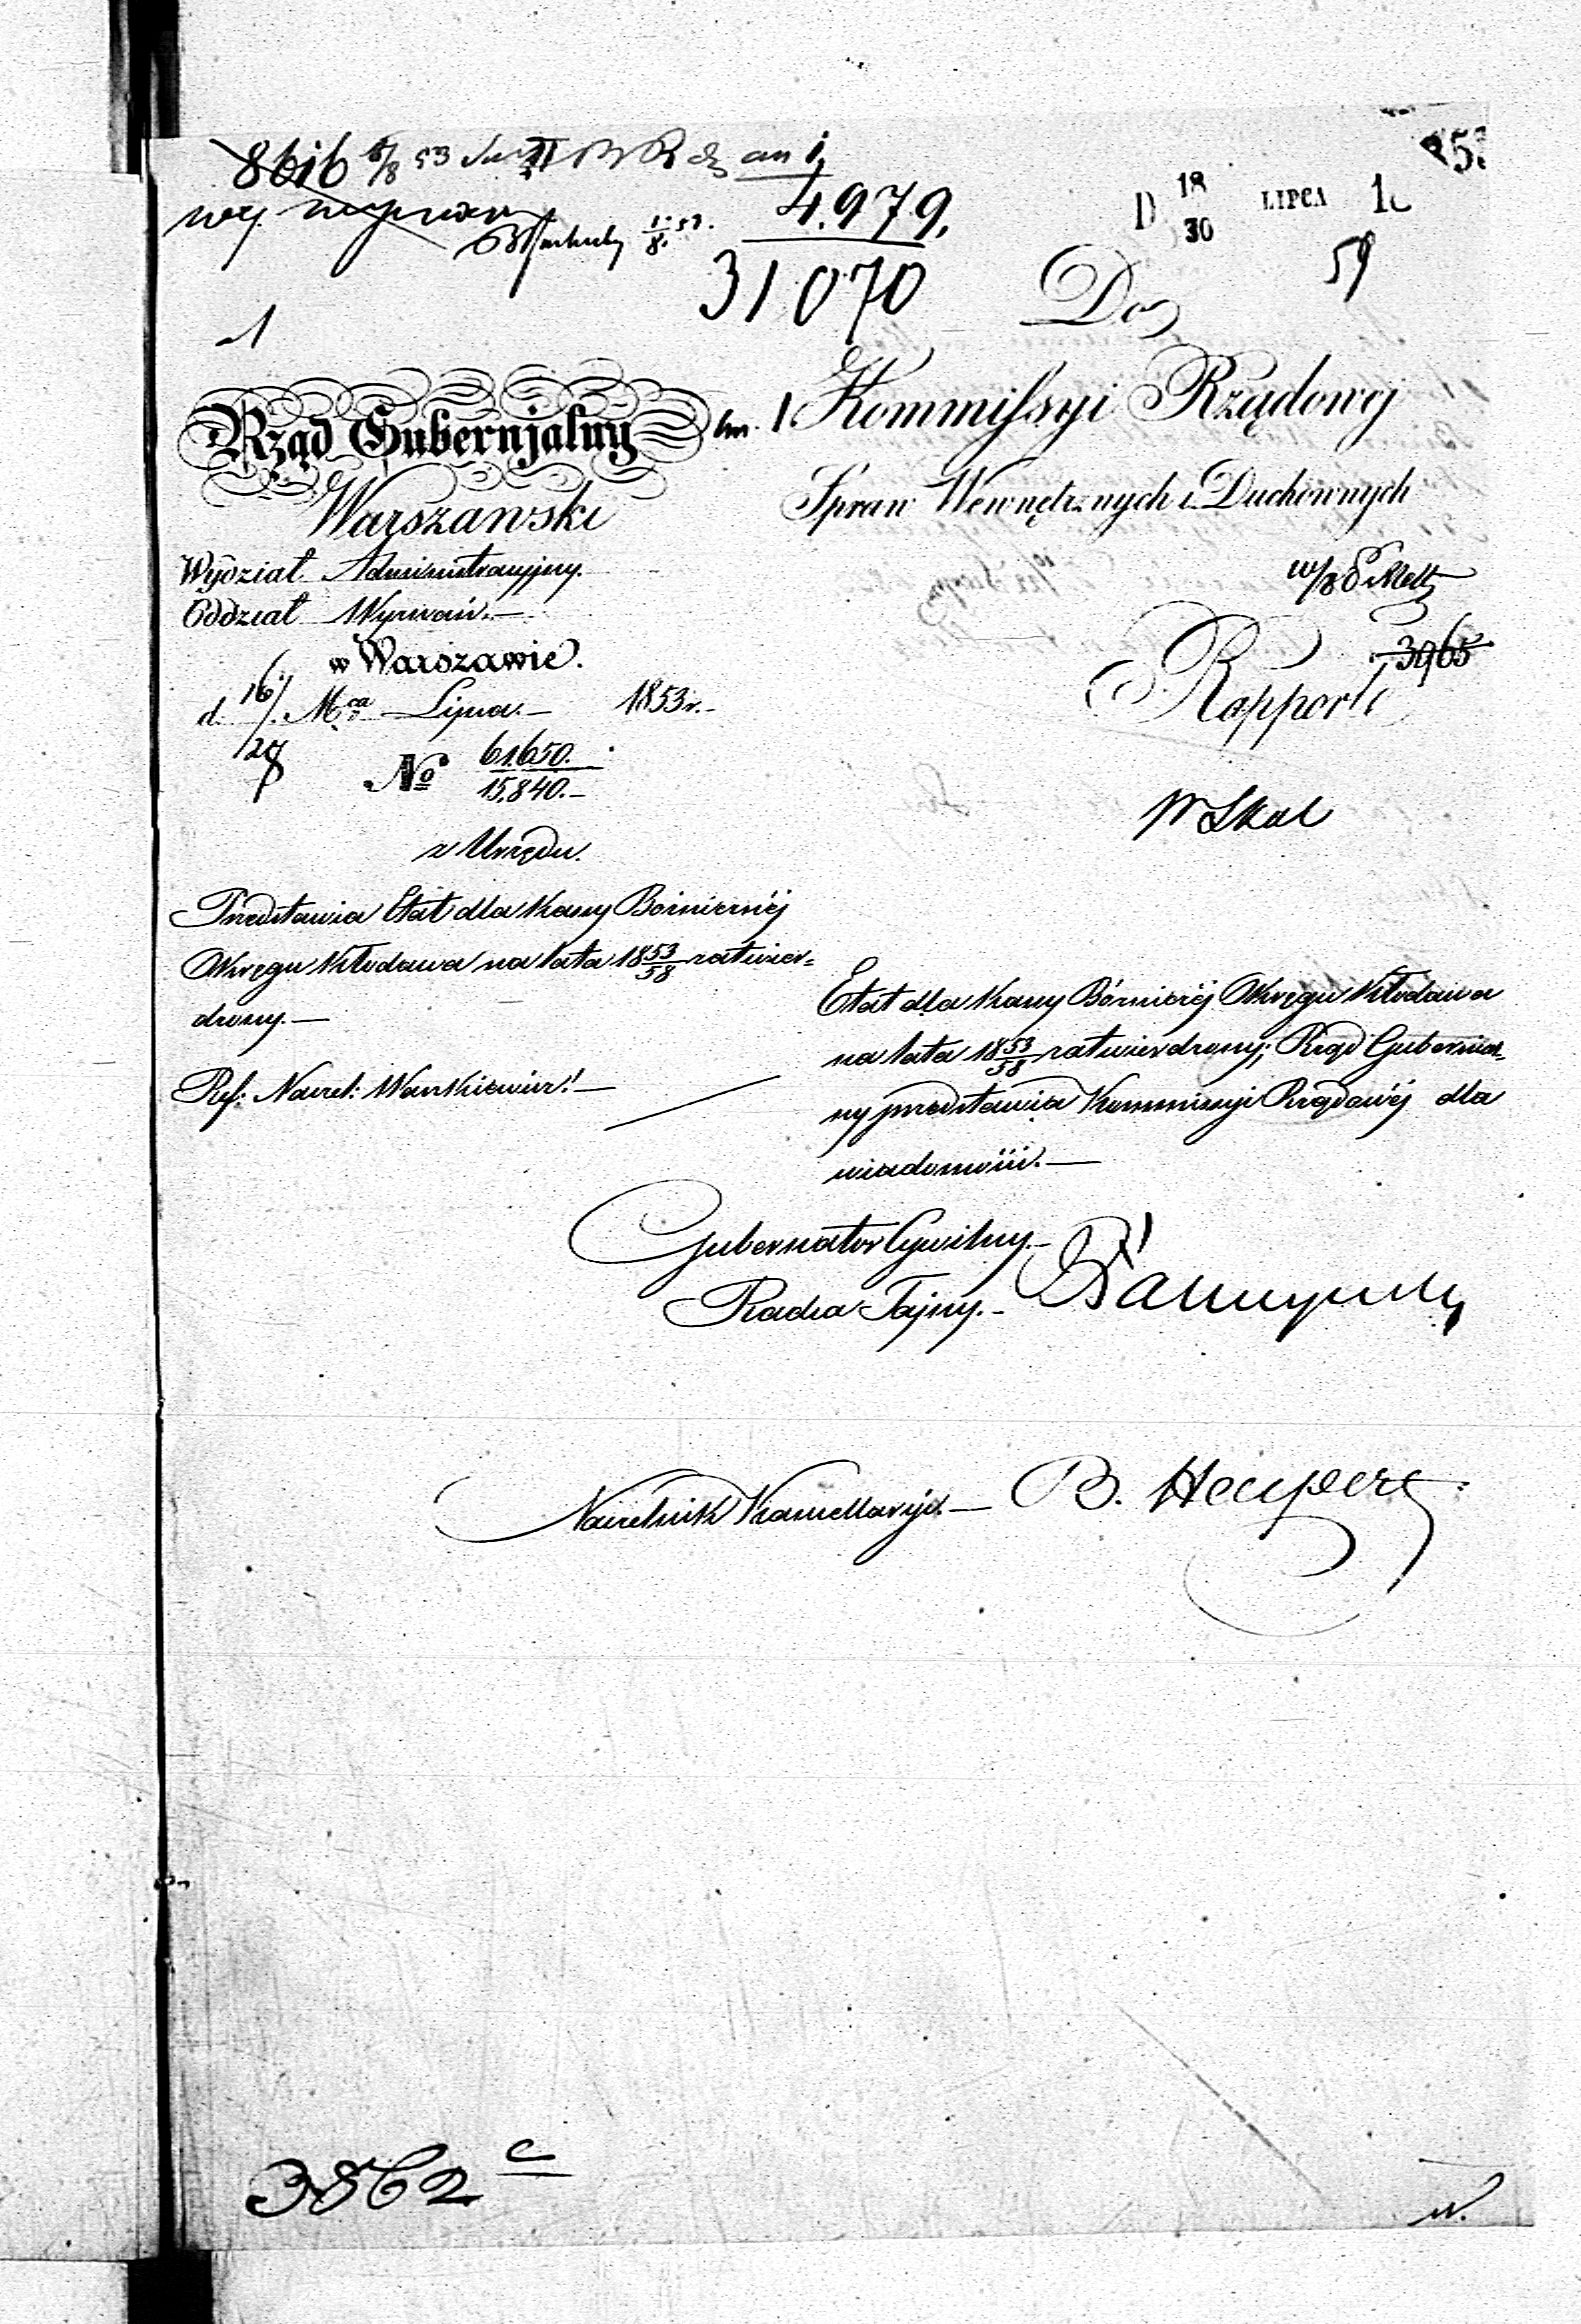 8616 6/8 53
4.979.
31070
D 18/30 LIPCA
59
1
Do
Rząd Gubernjalny
Kommissyi Rządowej
Warszawski
Spraw Wewnętrznych i Duchownych
Wydział Administracyjny.
Oddział Wyznań.—
w Warszawie.
3965
d. 16/28 Mca Lipca.— 1853 r.—
Rapport
No 61650./15,840.—
z Urzędu.
Przedstawia Etat dla Kassy Bóżniczéj
Okręgu Kłodawa na lata 1853/58 zatwier=
dzony.—
Etat dla Kassy Bóżniczéj Okręgu Kłodawa
na lata 1853/58 zatwierdzony; Rząd Gubernial=
ny przedstawia Kommissyi Rządowéj dla
wiadomości.—
Ref: Naczel:
Gubernator Cywilny.—
Radca Tajny.—
Naczelnik Kancellaryi.— B.
3862 c